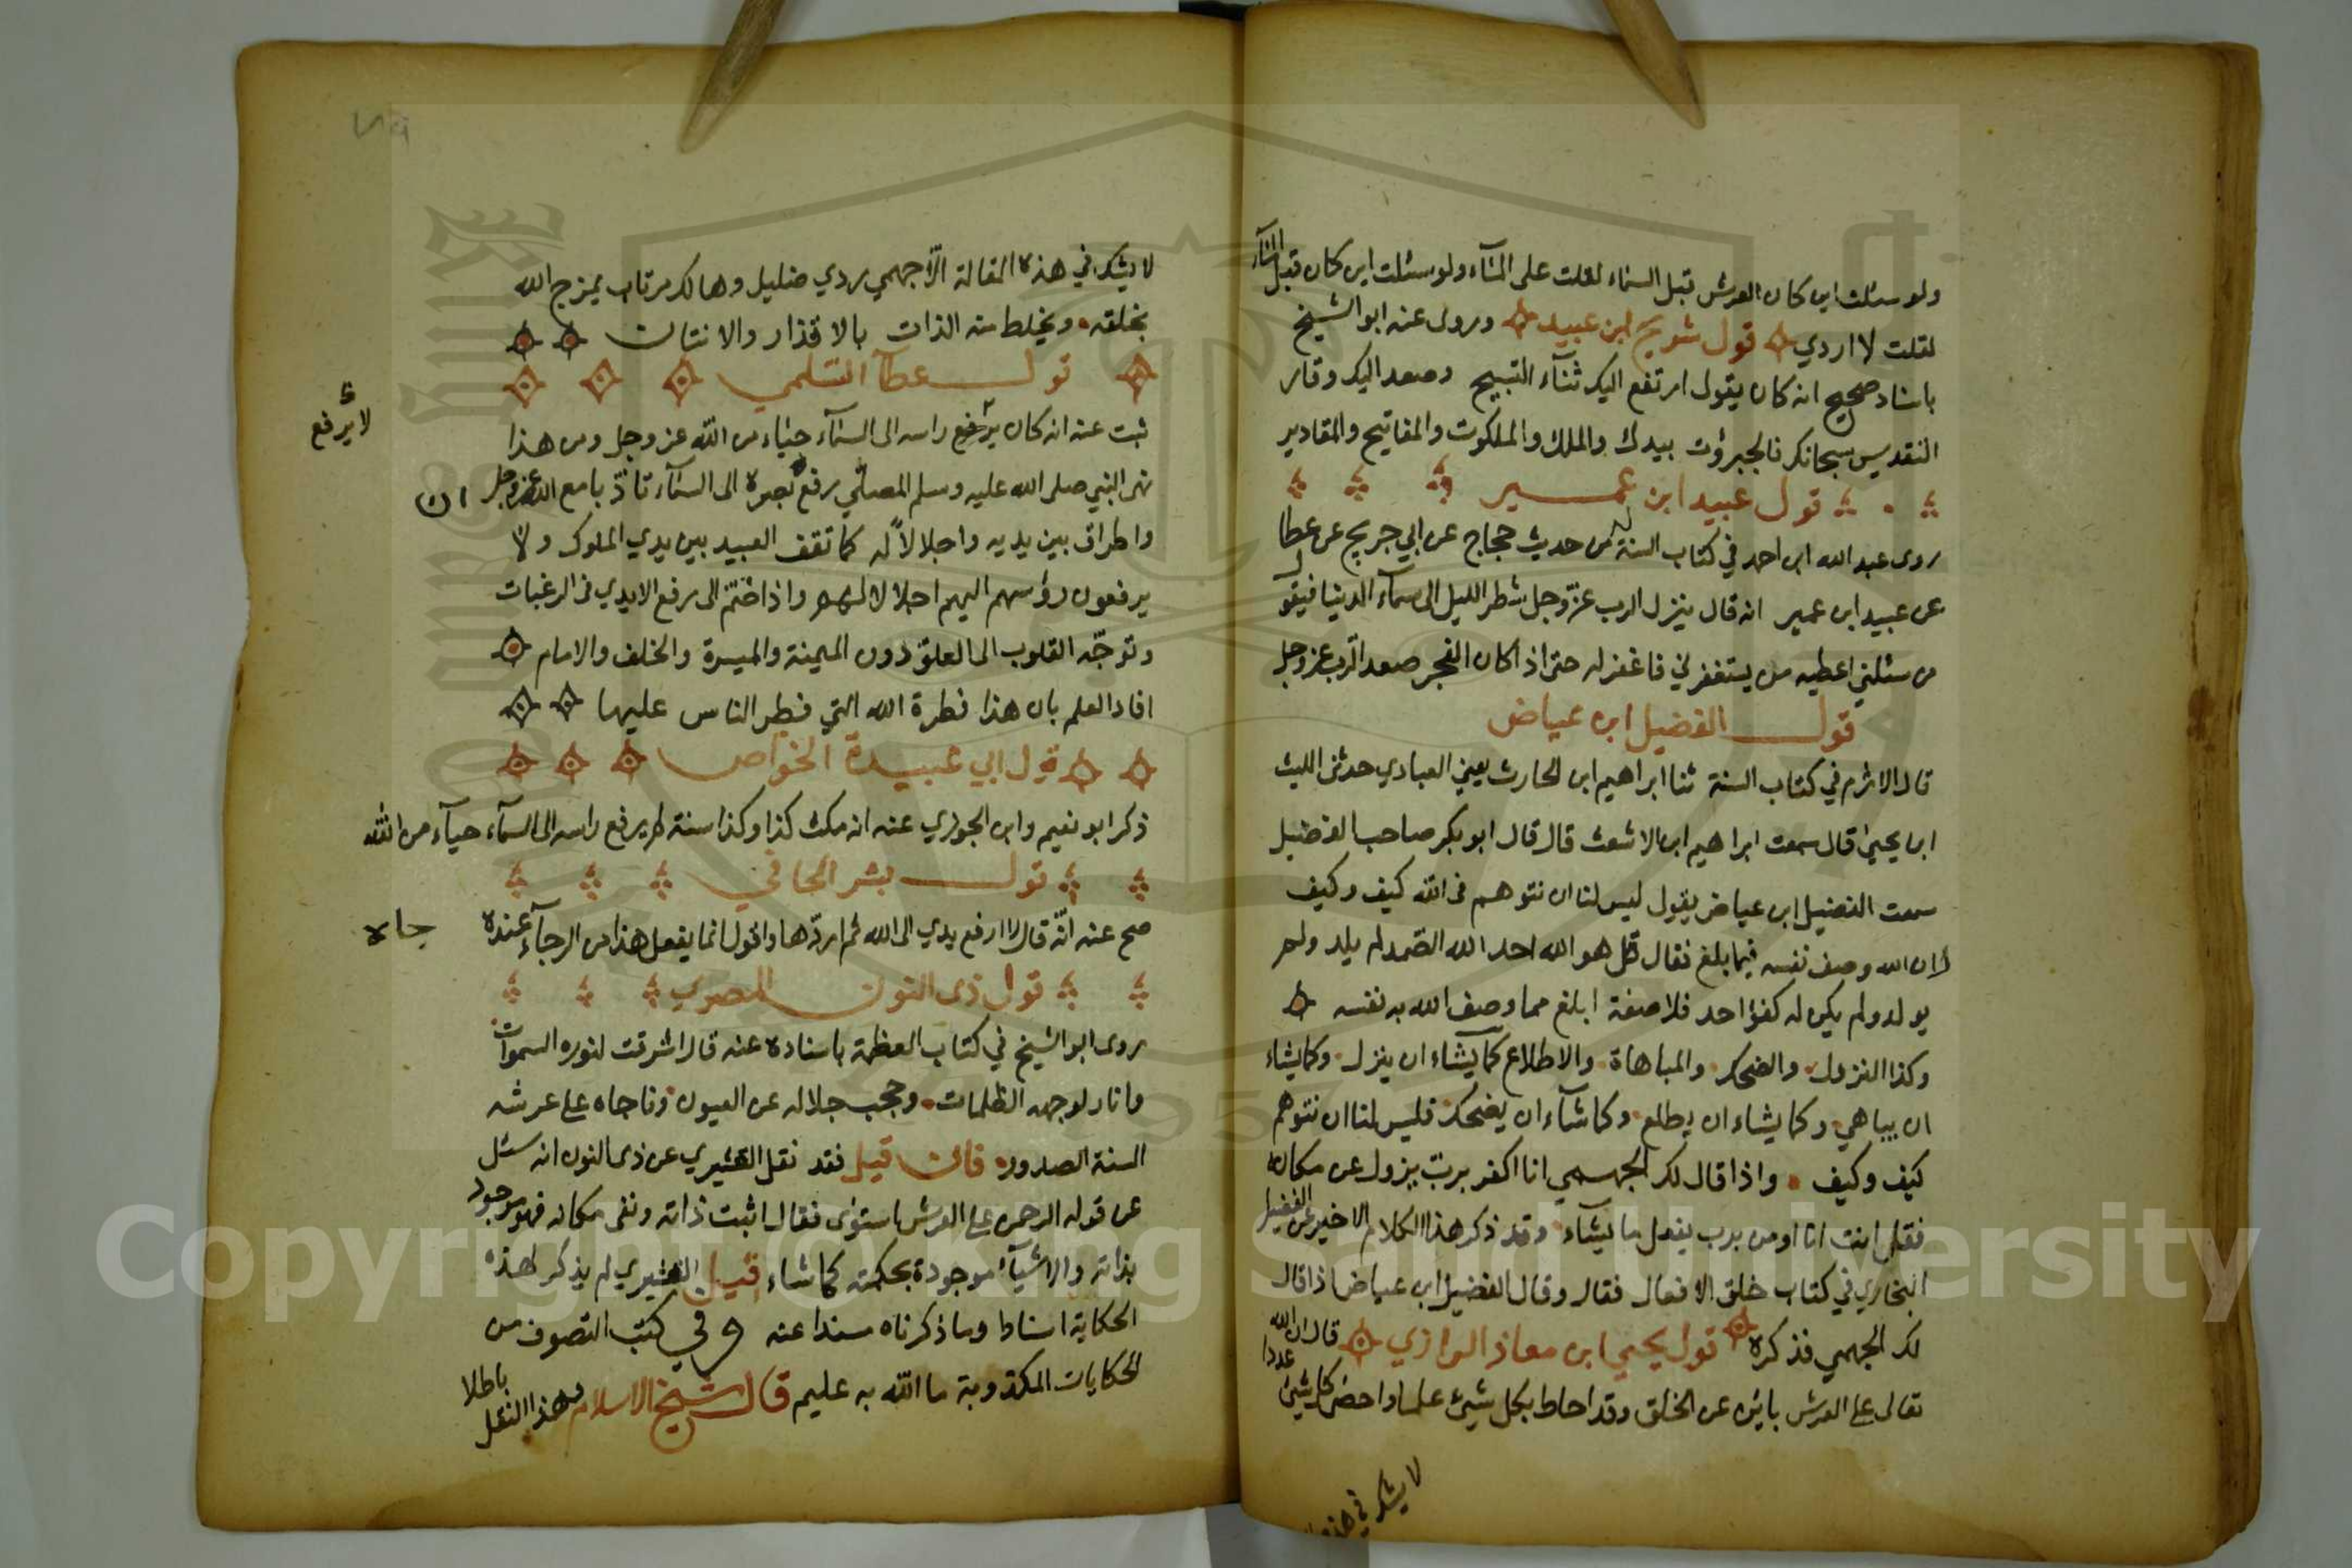 ولو سئلت اين كان العرش قبل السماء لقلت على المآء ولو سئلت اين كان قبل المآء
لقلت لا ادري قول شريح ابن عبيد وروى عنه ابو الشيخ
باسناد صحيح انه كان يقول ارتفع اليك ثنآء التسبيح وصعد اليك وقار
التقديس سبحانك فالجبروت بيدك والملك والملكوت والمفاتيح والمقادير
قول عبيد ابن عمير
روى عبد الله ابن احمد في كتاب السنة له من حديث حجاج عن ابي جريج عن عطا
عن عبيد ابن عمير انه قال ينزل الرب عزّ وجل شطر الليل الى سمآء الدنيا فيقول
من سئلني اعطيه من يستغفرني فاغفر له حتى اذا كان الفجر صعد الرب عز وجل
قول الفضيل ابن عياض
قال الاثرم في كتاب السنة ثنا ابراهيم ابن الحارث يعني العبادي حدثنى الليث
ابن يحيى قال سمعت ابراهيم ابن الاشعث قال قال ابو بكر صاحب الفضيل
سمعت الفضيل ابن عياض يقول ليس لنا ان نتوهم فى الله كيف وكيف
لان الله وصف نفسه فيما بلغ فقال قل هو الله احد الله الصّمد لم يلد ولم
يولد ولم يكن له كفؤا احد فلا صفة ابلغ مما وصف الله به نفسه
وكذا النزول والضحك والمباهاة والاطلاع كما يشاء ان ينزل وكما يشاء
ان يباهي وكما يشاء ان يطلع وكما شآء ان يضحك فليس لنا ان نتوهم
كيف وكيف واذا قال لك الجهمي انا اكفر برب يزول عن مكانه
فقل انت انا اومن برب يفعل ما يشآء وقد ذكر هذا الكلام الاخير عن الفضيل
البخاري في كتاب خلق الافعال فقال وقال الفضيل ابن عياض اذا قال
لك الجهمي فذكره قول يحيى ابن معاذ الرازي قال ان الله
تعالى على العرش بائن عن الخلق وقد احاط بكل شيئ علما واحصى كل شيئ عددا
لا يشك في هذه
لا يشك في هذه المقالة الّا جهمي ردي ضليل وهالك مرتاب يمزج الله
بخلقه ويخلط منه الذات بالاقذار والانتان
قول عطآ السّلمي
ثبت عنه انه كان يرفع راسه الى السمآء حيآء من الله عز وجل ومن هذا
لا يرفع
نهى النبي صلى الله عليه وسلم المصلّي رفع بصره الى السمآء تأدّبا مع الله عز وجل
واطراق بين يديه واجلالاً له كما تقف العبيد بين يدي الملوك ولا
يرفعون رؤسهم اليهم اجلالا لهم واذا ضمّ الى رفع الايدي فى الرغبات
وتوجّه القلوب الى العلوّ دون الميمنة والميسرة والخلف والامام
افاد العلم بان هذا فطرة الله التي فطر الناس عليها
قول ابي عبيدة الخواص
ذكر ابو نعيم وابن الجوزي عنه انه مكث كذا وكذا سنة لم يرفع راسه الى السمآء حيآء من الله
قول بشر الحافي
صح عنه انّه قال لا ارفع يدي الى الله ثم اردّها واقول انما يفعل هذا من الرجآء عنده
جاه
قول ذى النون المصري
روى ابو الشيخ في كتاب العظمة باسناده عنه قال اشرقت لنوره السموات
وانار لوجهه الظلمات وحجب جلاله عن العيون وناجاه على عرشه
السنة الصدور فان قيل فقد نقل القشيري عن ذى النون انه سئل
عن قوله الرحمن على العرش استوى فقال اثبت ذاته ونفى مكانه فهو موجود
بذاته والاشيآء موجودة بحكمته كما شاء قيل القشيري لم يذكر لهذه
الحكاية اسنادا وما ذكرناه مسندا عنه وفي كتب التصوف من
الحكايات المكذوبة ما الله به عليم قال شيخ الاسلام وهذا النقل باطلا